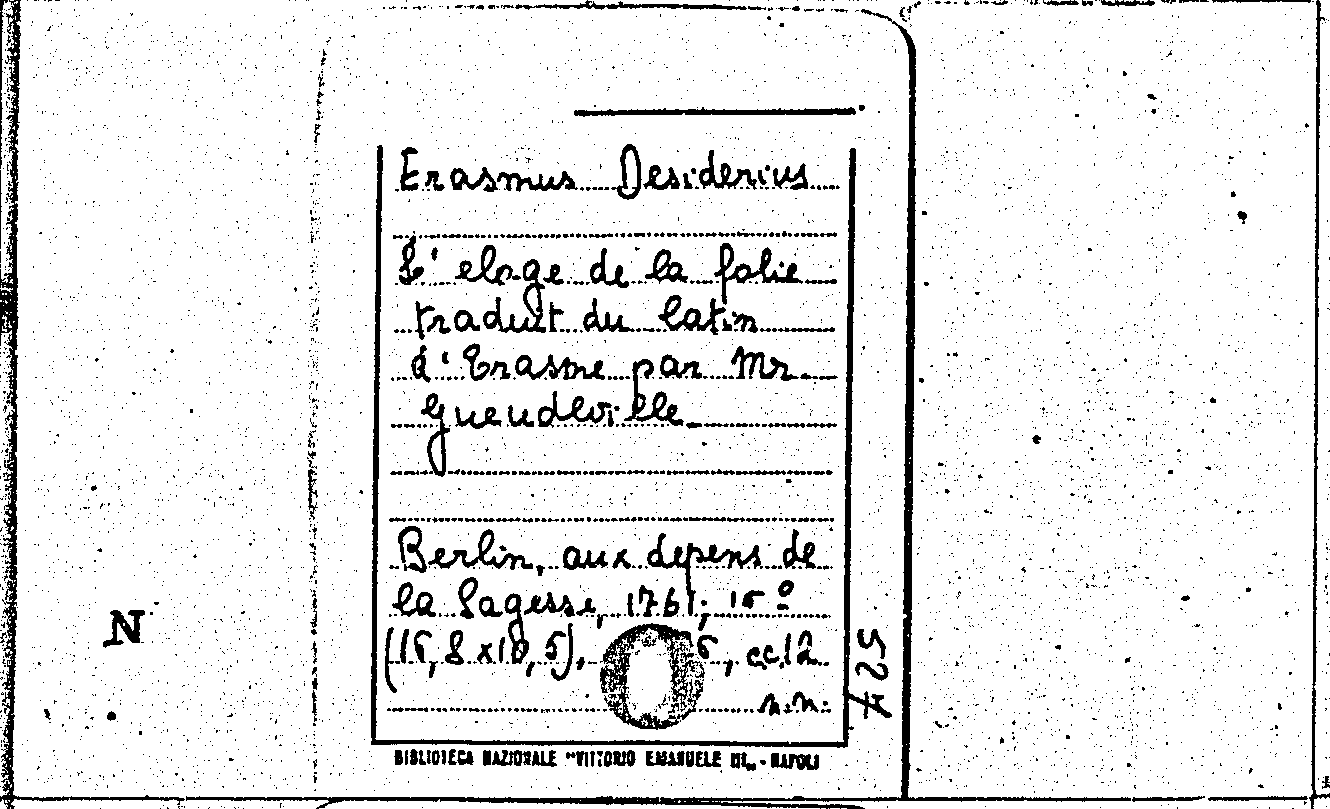 Erasmus Desiderius
L' eloge de la folie
traduit du latin
d'Erasme par Mr.
Gueudeville.
Berlin, aux depens de
la Sagesse, 1761; 16º
cc.12
n.n.
527
N
BIBLIOTECA NAZIONALE "VITTORIO EMANUELE III„ - NAPOLI